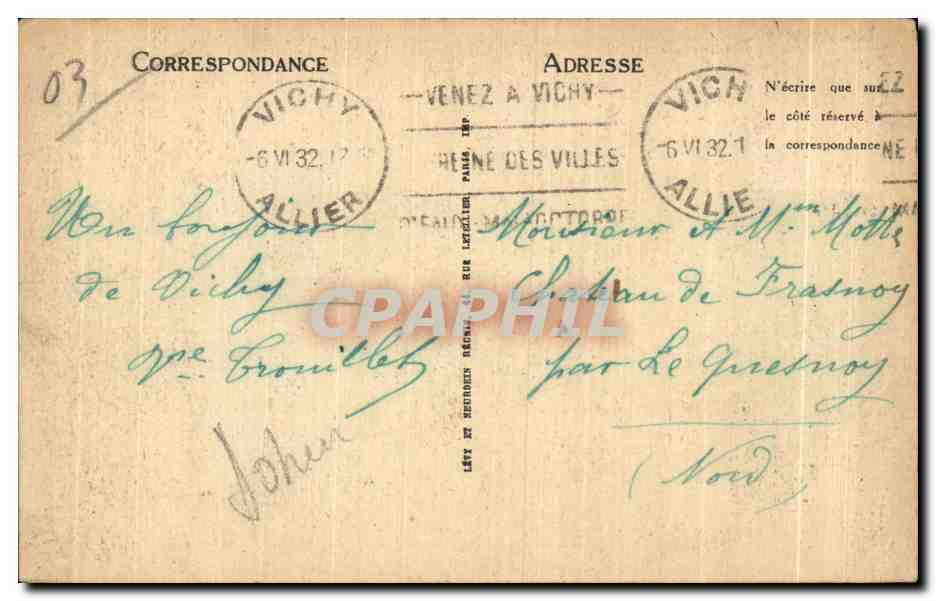 CORRESPONDANCE
ADRESSE
03
VICHY
-6 VI 32.12
ALLIER
—VENEZ A VICHY—
REINE DES VILLES
D'EAUX
VICH
-6 VI 32.1
ALLIE
EZ
NE
N'écrire que sur
le côté réservé à
la correspondance
Un bonjour
de Vichy
Trouillet
LÉVY ET NEURDEIN RÉUNIS, 44, RUE LETELLIER, PARIS, IMP.
Monsieur et Mme Motte
Château de Frasnoy
par Le Quesnoy
(Nord)
CPAPHIL